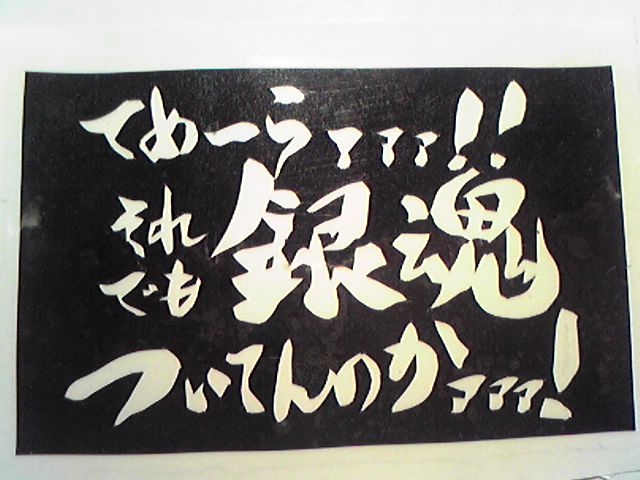 てめーらァァァ!!
それでも銀魂
ついてんのかァァァ!